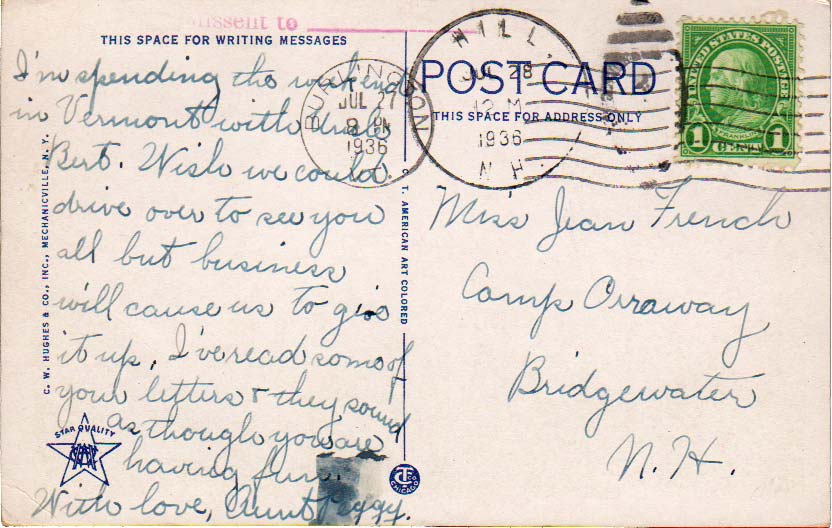 Missent to
THIS SPACE FOR WRITING MESSAGES
I'm spending the week end
in Vermont with Uncle
Bert. Wish we could
drive over to see you
all but business
will cause us to give
it up. I've read some of
your letters & they sound
as though you are
having fun.
With love, Aunt Peggy.
C. W. HUGHES & CO., INC., MECHANICVILLE, N. Y.
STAR QUALITY
C. T. AMERICAN ART COLORED
CHICAGO
BURLINGTON
JUL 27
8 PM
1936
HILL.
JUL 28
12 M
1936
N. H.
POST CARD
THIS SPACE FOR ADDRESS ONLY
UNITED STATES POSTAGE
FRANKLIN
1 1
Miss Jean French
Camp Orraway
Bridgewater
N. H.